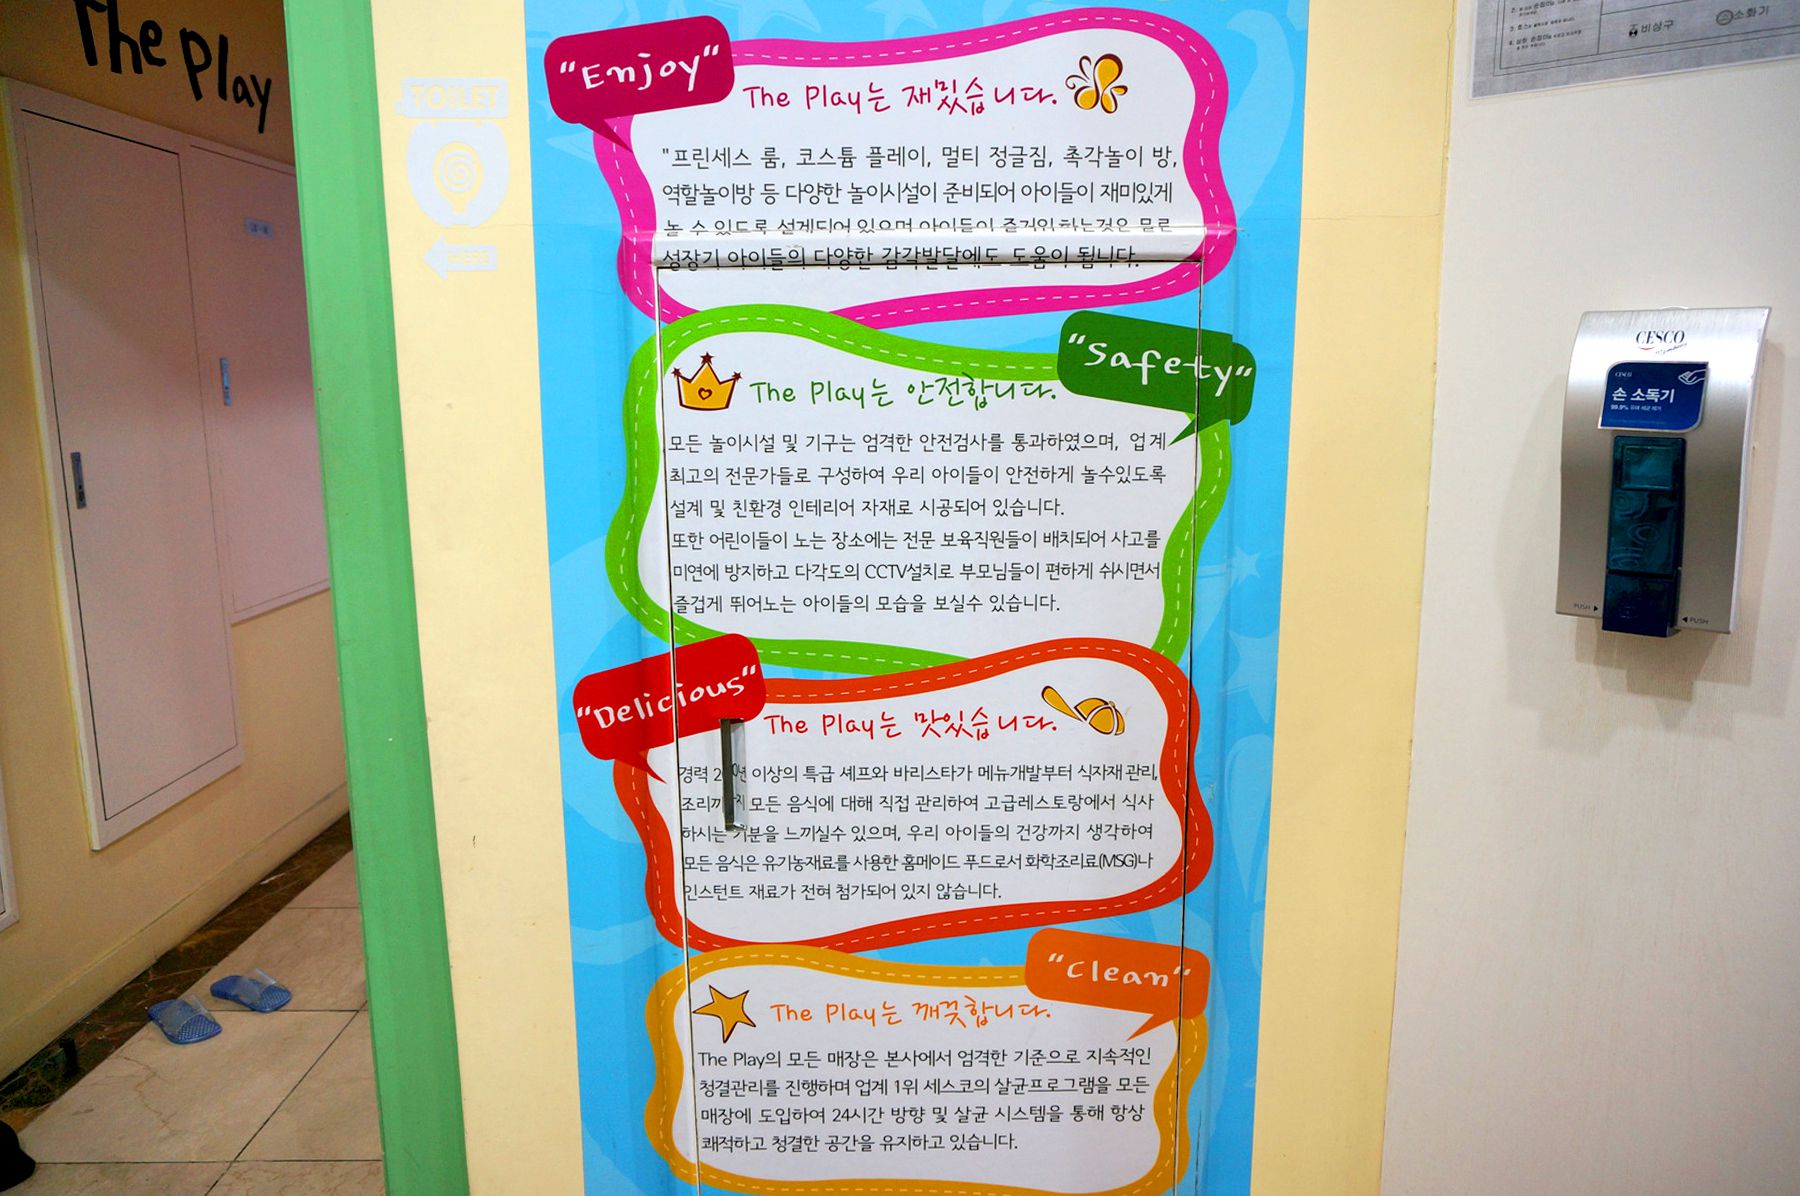 The Play
TOILET
HERE
"Enjoy"
The Play는 재밌습니다.
"프린세스 룸, 코스튬 플레이, 멀티 정글짐, 촉각놀이 방,
역할놀이방 등 다양한 놀이시설이 준비되어 아이들이 재미있게
놀 수 있도록 설계되어 있으며 아이들이 즐거워 하는것은 물론
성장기 아이들의 다양한 감각발달에도 도움이 됩니다.
"Safety"
The Play는 안전합니다.
모든 놀이시설 및 기구는 엄격한 안전검사를 통과하였으며, 업계
최고의 전문가들로 구성하여 우리 아이들이 안전하게 놀수있도록
설계 및 친환경 인테리어 자재로 시공되어 있습니다.
또한 어린이들이 노는 장소에는 전문 보육직원들이 배치되어 사고를
미연에 방지하고 다각도의 CCTV설치로 부모님들이 편하게 쉬시면서
즐겁게 뛰어노는 아이들의 모습을 보실수 있습니다.
"Delicious"
The Play는 맛있습니다.
경력 이상의 특급 셰프와 바리스타가 메뉴개발부터 식자재 관리,
모든 음식에 대해 직접 관리하여 고급레스토랑에서 식사
하시는 기분을 느끼실수 있으며, 우리 아이들의 건강까지 생각하여
모든 음식은 유기농재료를 사용한 홈메이드 푸드로서 화학조리료(MSG)나
인스턴트 재료가 전혀 첨가되어 있지 않습니다.
"Clean"
The Play는 깨끗합니다.
The Play의 모든 매장은 본사에서 엄격한 기준으로 지속적인
청결관리를 진행하며 업계 1위 세스코의 살균프로그램을 모든
매장에 도입하여 24시간 방향 및 살균 시스템을 통해 항상
쾌적하고 청결한 공간을 유지하고 있습니다.
비상구
소화기
CESCO
CESCO
손 소독기
99.9% 유해 세균 제거
PUSH
PUSH